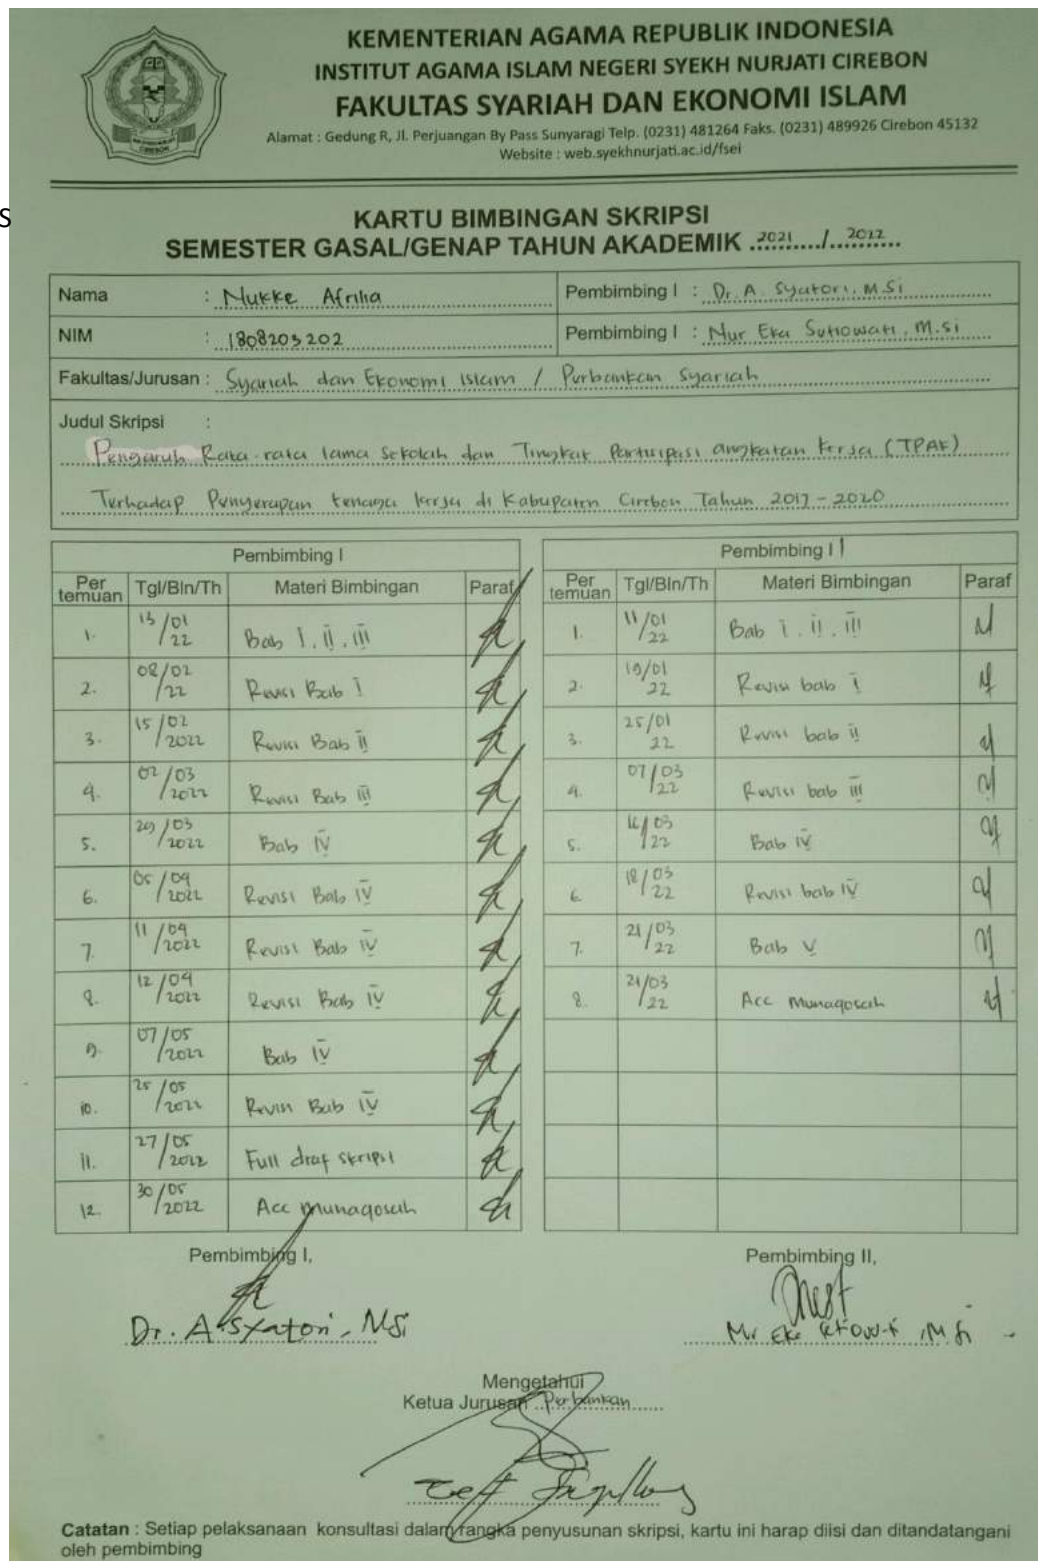 KEMENTERIAN AGAMA REPUBLIK INDONESIA
INSTITUT AGAMA ISLAM NEGERI SYEKH NURJATI CIREBON
FAKULTAS SYARIAH DAN EKONOMI ISLAM
Alamat : Gedung R, Jl. Perjuangan By Pass Sunyaragi Telp. (0231) 481264 Faks. (0231) 489926 Cirebon 45132
Website : web.syekhnurjati.ac.id/fsei
CIREBON
S
KARTU BIMBINGAN SKRIPSI
SEMESTER GASAL/GENAP TAHUN AKADEMIK 2021 / 2022
Nama : Nukke Afrilia
Pembimbing I : Dr. A. Syatori, M.Si
NIM : 1808203202
Pembimbing I : Nur Eka Setiowati, M.si
Fakultas/Jurusan : Syariah dan Ekonomi Islam / Perbankan Syariah
Judul Skripsi :
Pengaruh Rata-rata lama sekolah dan Tingkat Partisipasi angkatan kerja (TPAK)
Terhadap Penyerapan tenaga kerja di Kabupaten Cirebon Tahun 2017 - 2020
Pembimbing I
Per temuan Tgl/Bln/Th Materi Bimbingan Paraf
1. 13/01/22 Bab I, II, III
2. 08/02/22 Revisi Bab I
3. 15/02/2022 Revisi Bab II
4. 02/03/2022 Revisi Bab III
5. 29/03/2022 Bab IV
6. 05/04/2022 Revisi Bab IV
7. 11/04/2022 Revisi Bab IV
8. 12/04/2022 Revisi Bab IV
9. 07/05/2022 Bab IV
10. 25/05/2022 Revisi Bab IV
11. 27/05/2022 Full draf skripsi
12. 30/05/2022 Acc munaqosah
Pembimbing II
Per temuan Tgl/Bln/Th Materi Bimbingan Paraf
1. 11/01/22 Bab I, II, III
2. 19/01/22 Revisi bab I
3. 25/01/22 Revisi bab II
4. 07/03/22 Revisi bab III
5. 16/03/22 Bab IV
6. 18/03/22 Revisi bab IV
7. 21/03/22 Bab V
8. 21/03/22 Acc Munaqosah
Pembimbing I,
Dr. A Syatori, MSi
Pembimbing II,
Nur Eka Setiowati, M.Si
Mengetahui
Ketua Jurusan Perbankan
Catatan : Setiap pelaksanaan konsultasi dalam rangka penyusunan skripsi, kartu ini harap diisi dan ditandatangani
oleh pembimbing